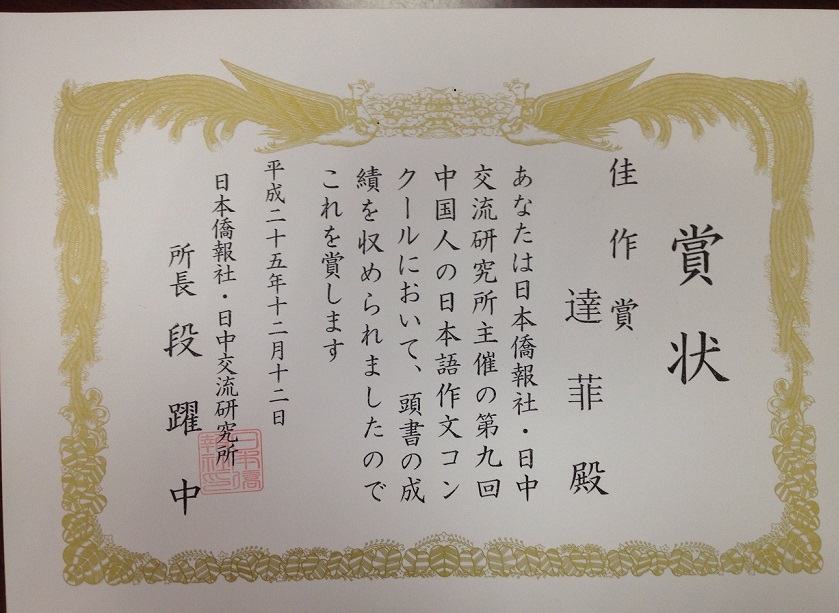 賞状
佳作賞
達菲殿
あなたは日本僑報社・日中
交流研究所主催の第九回
中国人の日本語作文コン
クールにおいて、頭書の成
績を収められましたので
これを賞します
平成二十五年十二月十二日
日本僑報社・日中交流研究所
所長 段躍中